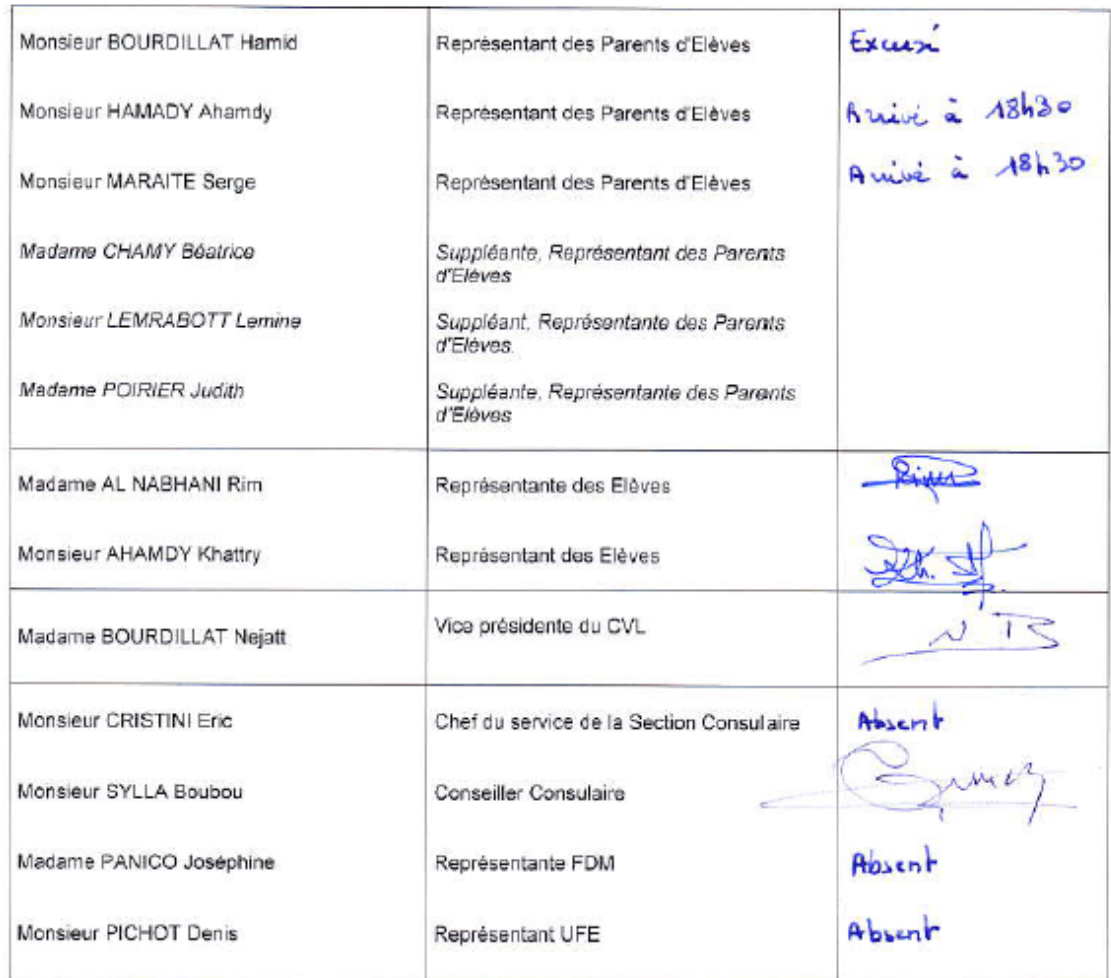 Monsieur BOURDILLAT Hamid Représentant des Parents d'Elèves Excusé
Monsieur HAMADY Ahamdy Représentant des Parents d'Elèves Arrivé à 18h30
Monsieur MARAITE Serge Représentant des Parents d'Elèves Arrivé à 18h30
Madame CHAMY Béatrice Suppléante, Représentant des Parents
d'Elèves
Monsieur LEMRABOTT Lemine Suppléant, Représentante des Parents
d'Elèves.
Madame POIRIER Judith Suppléante, Représentante des Parents
d'Elèves
Madame AL NABHANI Rim Représentante des Elèves
Monsieur AHAMDY Khattry Représentant des Elèves
Madame BOURDILLAT Nejatt Vice présidente du CVL N B
Monsieur CRISTINI Eric Chef du service de la Section Consulaire Absent
Monsieur SYLLA Boubou Conseiller Consulaire
Madame PANICO Joséphine Représentante FDM Absent
Monsieur PICHOT Denis Représentant UFE Absent